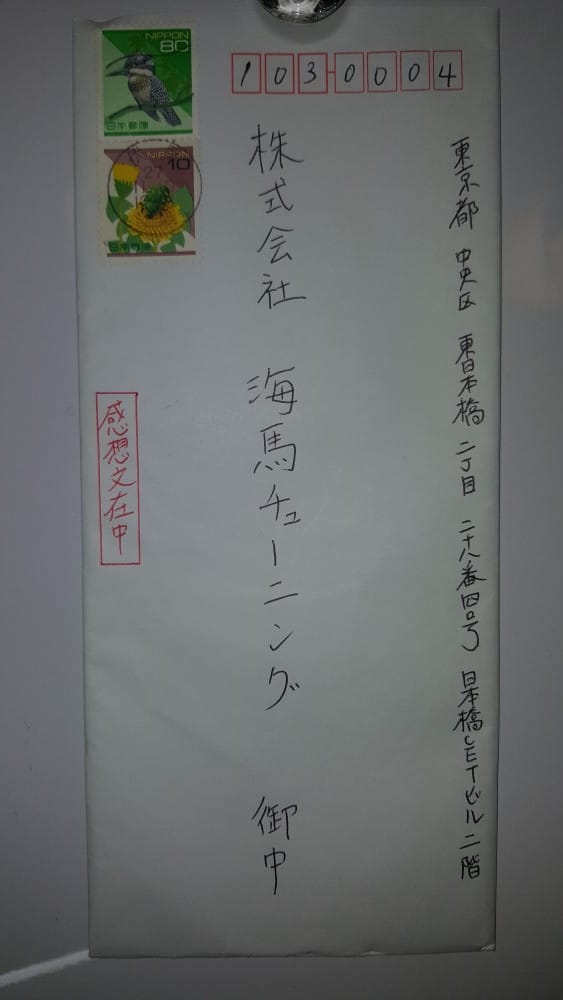 1030004
東京都 中央区 東日本橋 二丁目 二十八番四号 日本橋CETビル二階
株式会社 海馬チューニング 御中
NIPPON
80
日本郵便
NIPPON
10
日本郵便
感想文在中